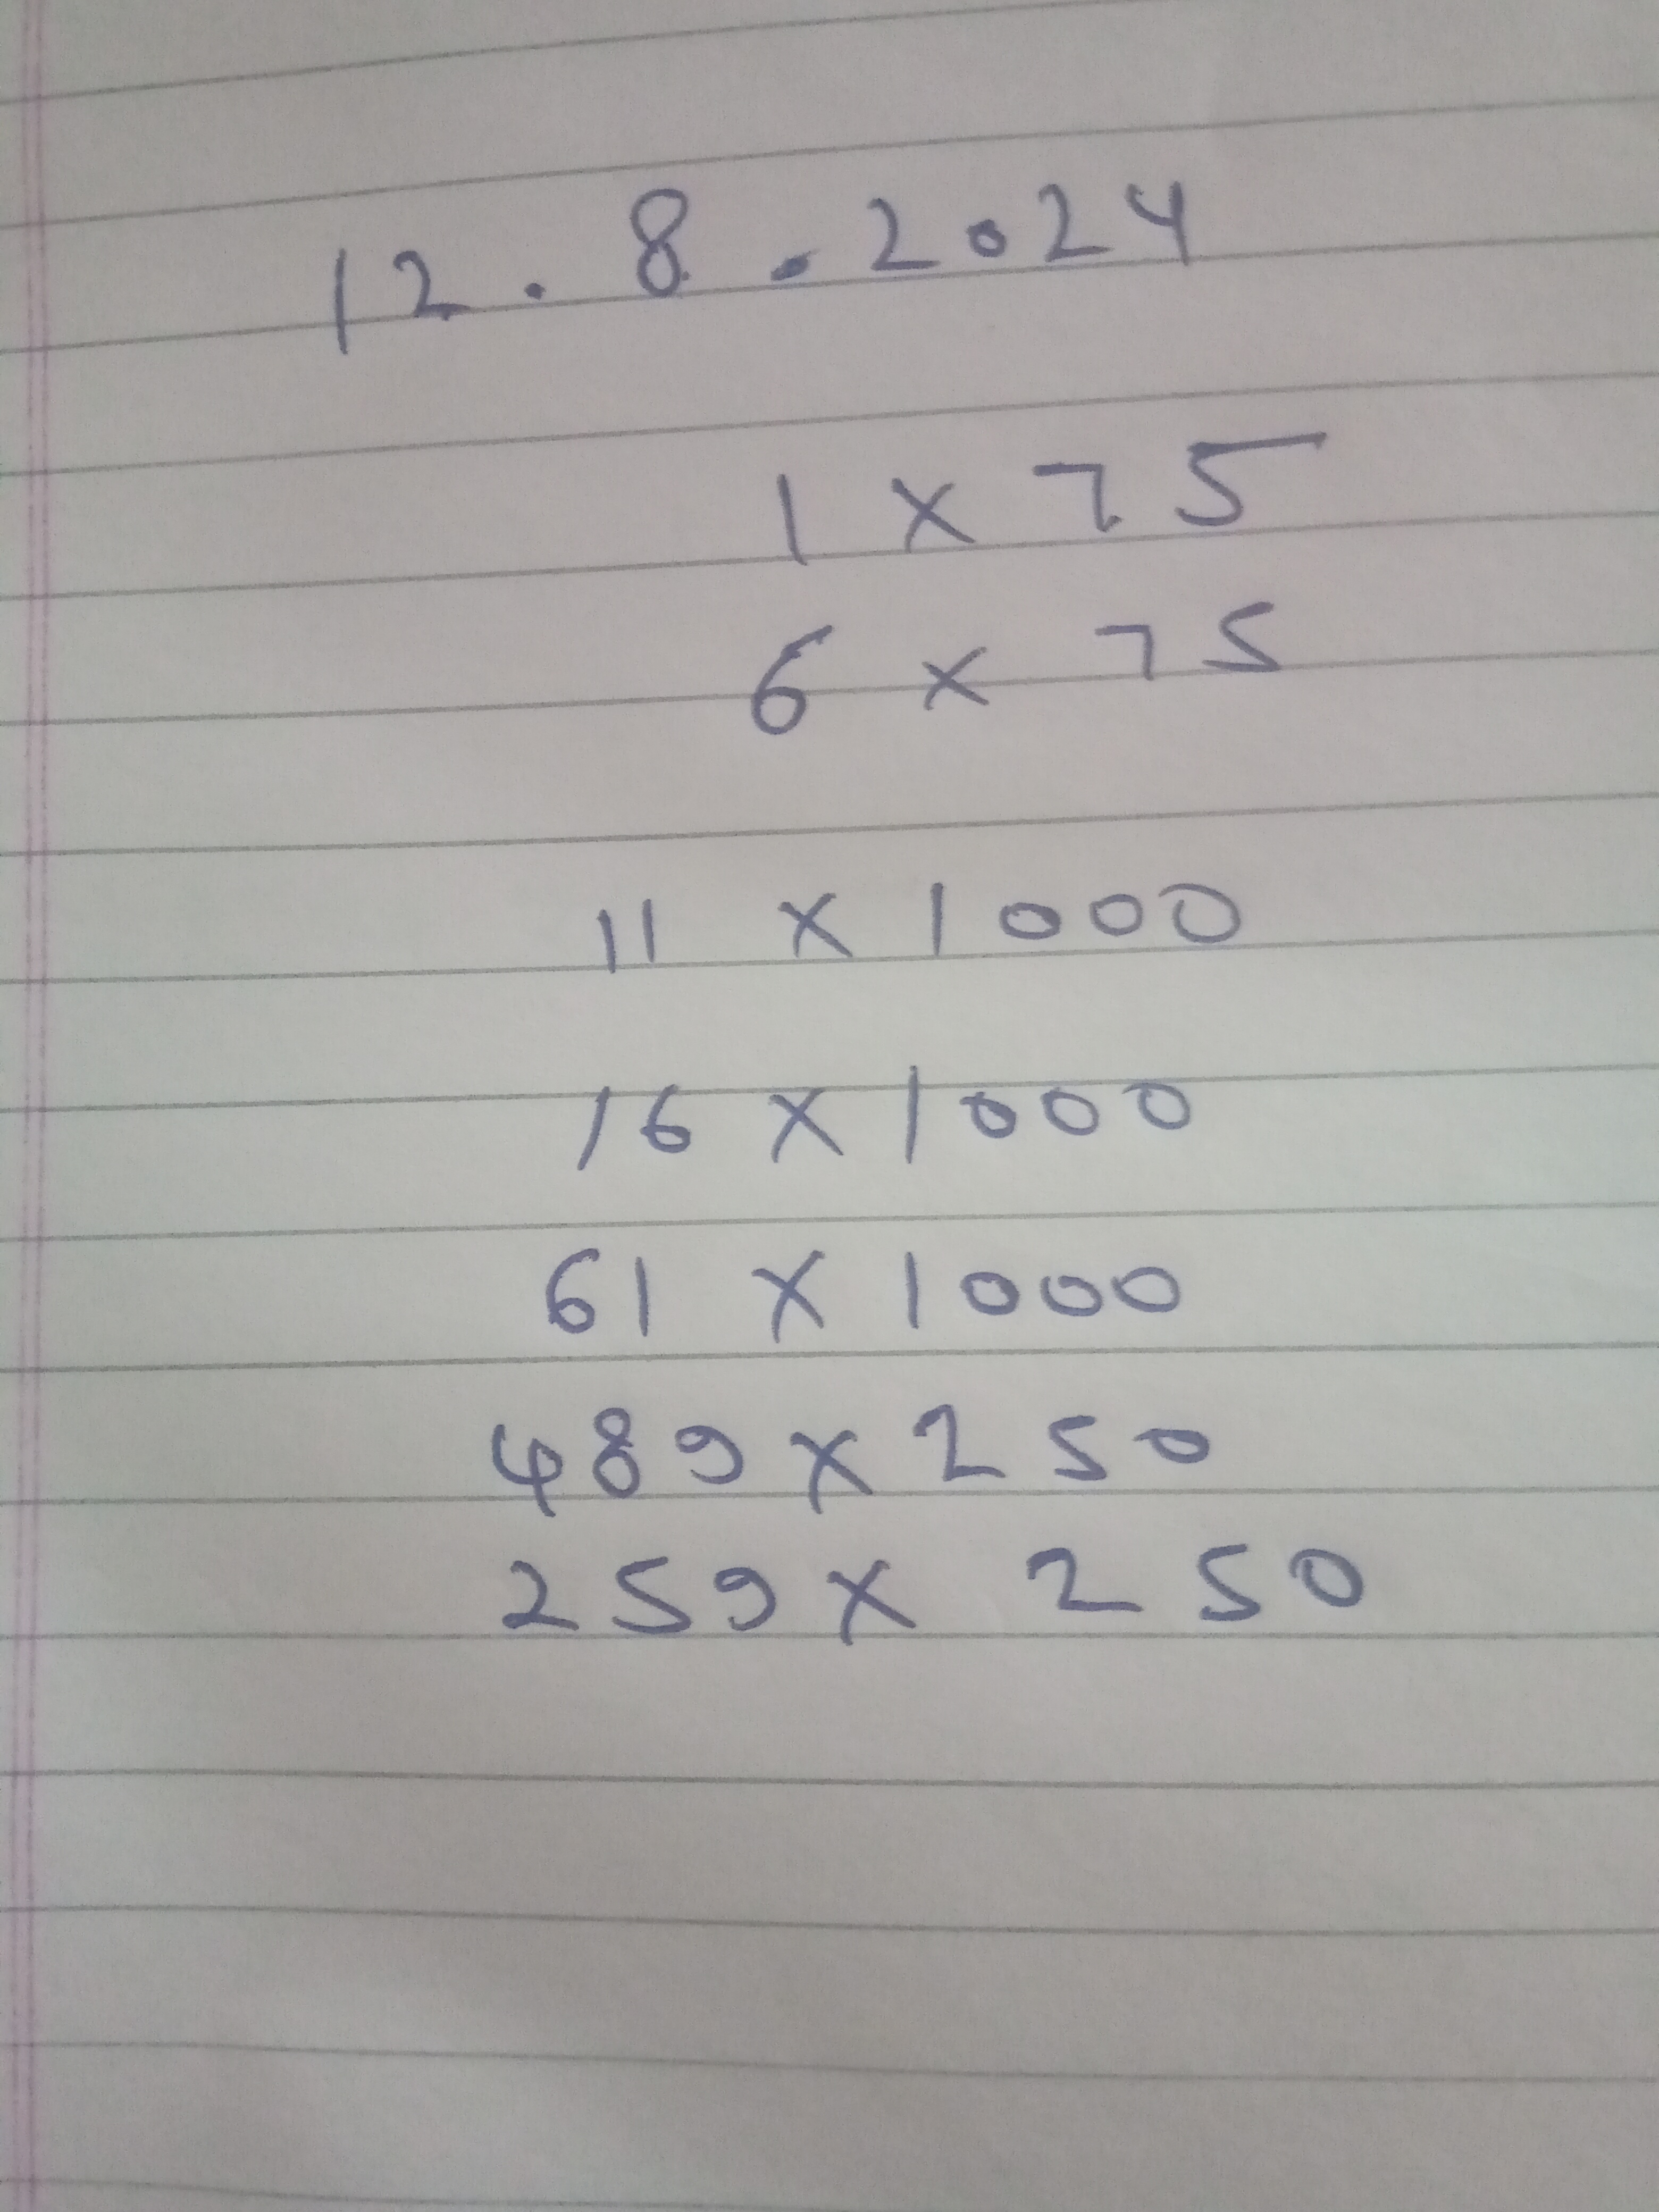 12.8.2024
1 x 75
6 x 75
11 x 1000
16 x 1000
61 x 1000
489 x 250
259 x 250